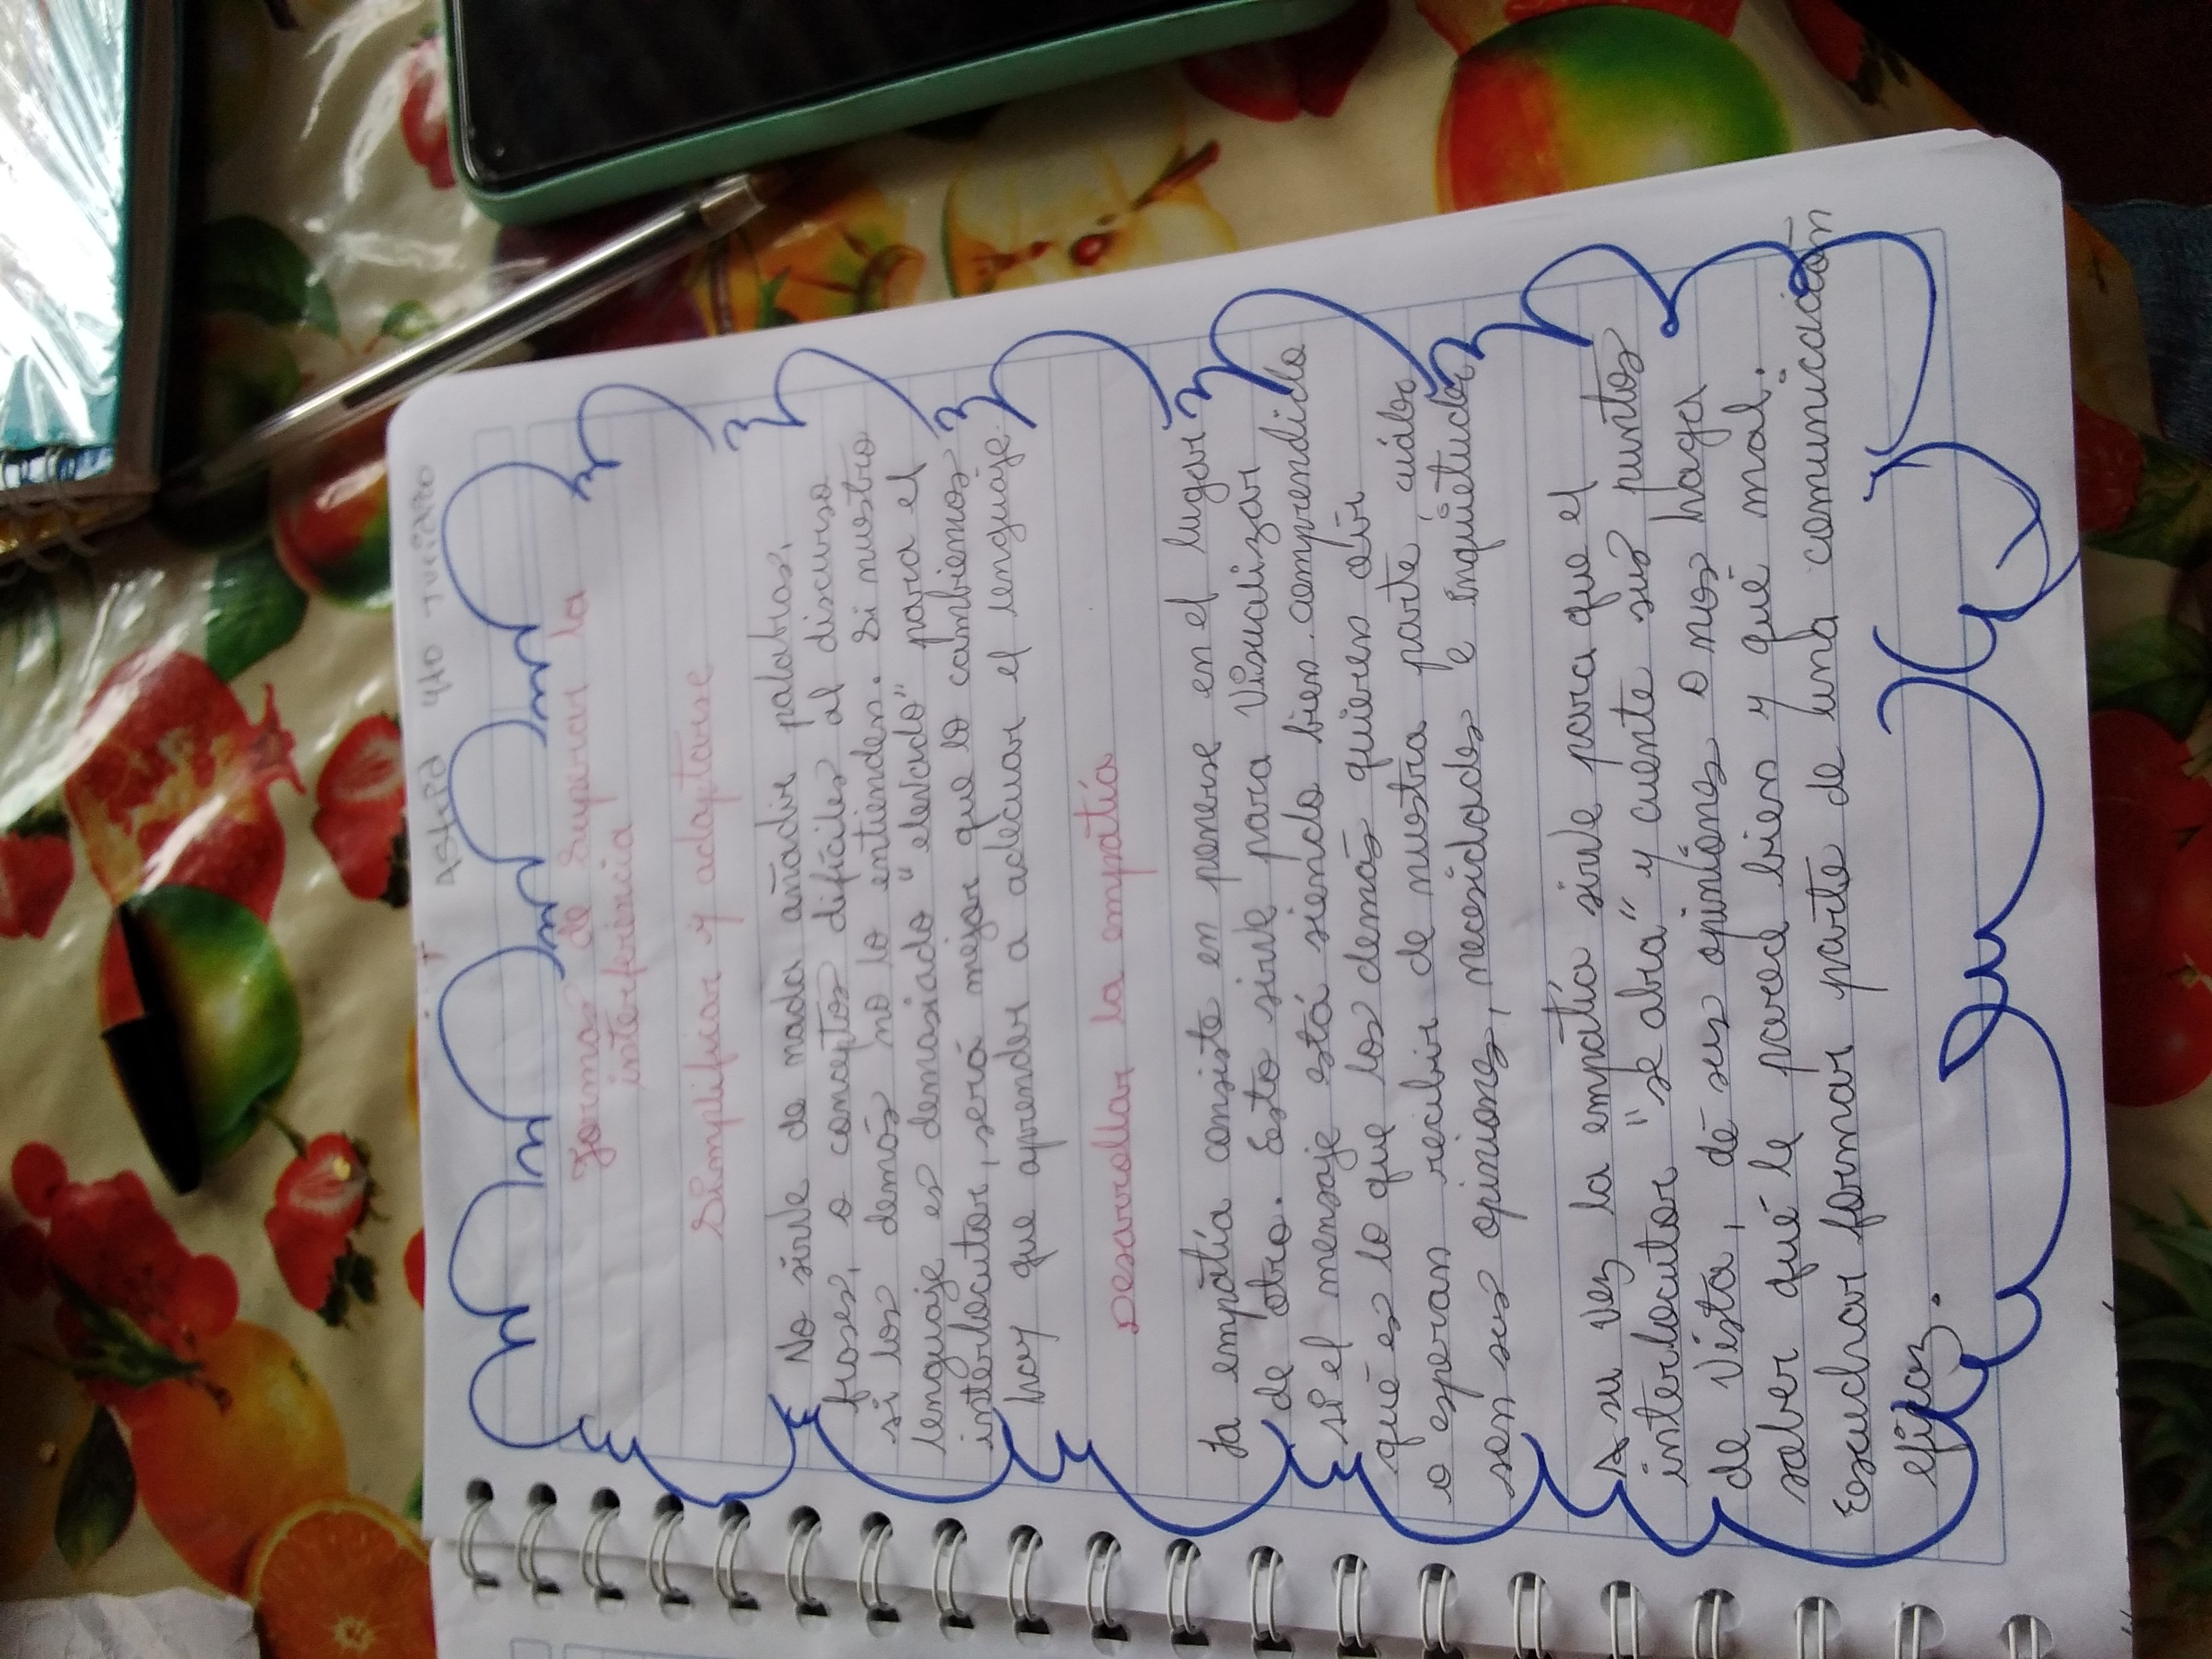 Formas de superar la
interferencia
Simplificar y adaptarse
No sirve de nada añadir palabras,
frases, o conceptos difíciles al discurso
si los demás no lo entienden. Si nuestro
lenguaje es demasiado "elevado" para el
interlocutor, será mejor que lo cambiemos
hay que aprender a adecuar el lenguaje.
Desarrollar la empatía
La empatía consiste en ponerse en el lugar
de otro. Esto sirve para visualizar
si el mensaje está siendo bien comprendido
qué es lo que los demás quieren oír
o esperan recibir de nuestra parte, cuáles
son sus opiniones, necesidades e inquietudes
A su vez la empatía sirve para que el
interlocutor "se abra" y cuente sus puntos
de vista, dé sus opiniones o nos haga
saber qué le parece bien y qué mal.
Escuchar formar parte de una comunicación
eficaz.